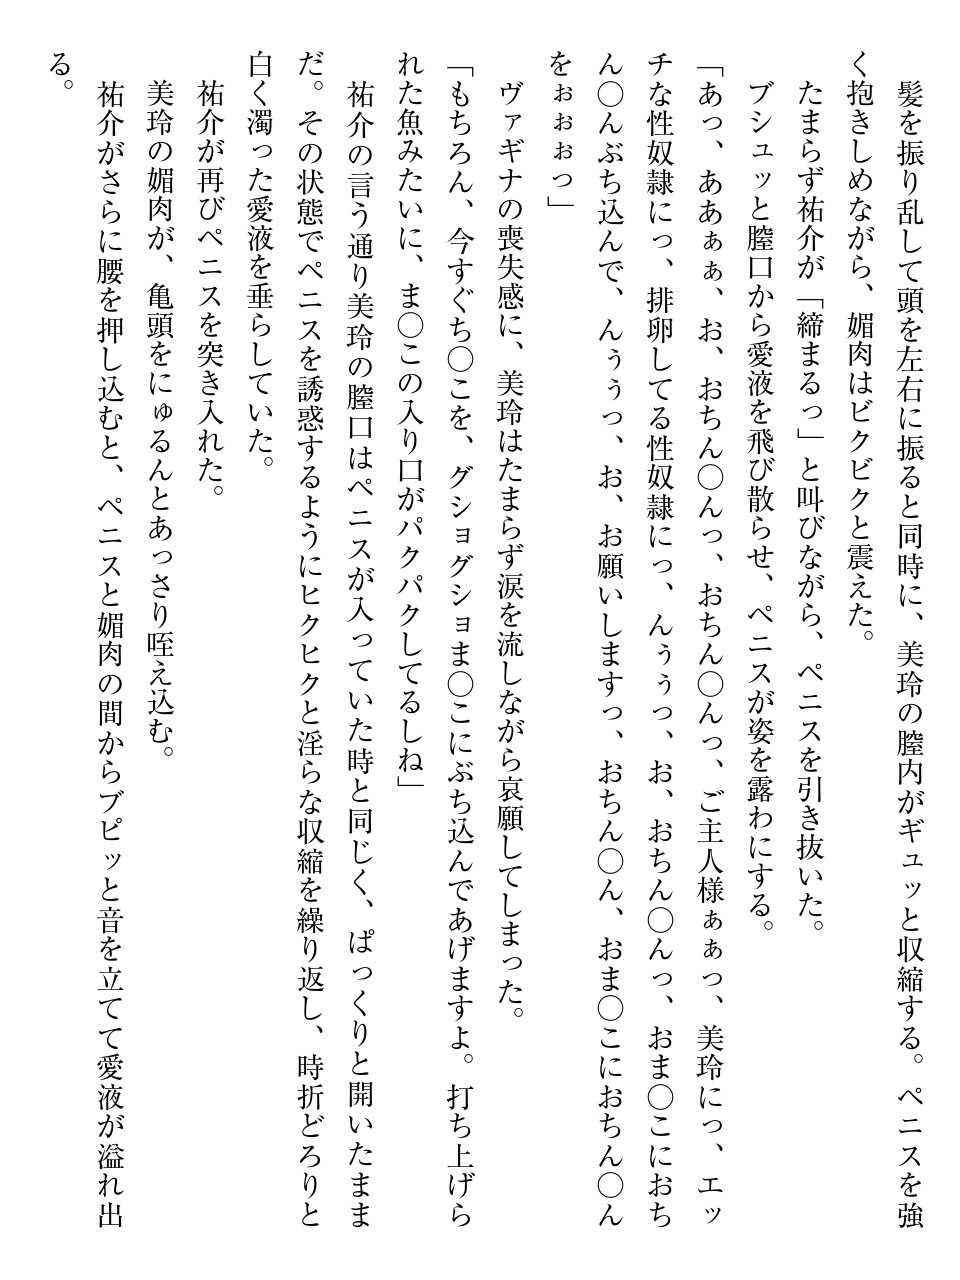 髪を振り乱して頭を左右に振ると同時に、美玲の膣内がギュッと収縮する。ペニスを強
く抱きしめながら、媚肉はビクビクと震えた。
たまらず祐介が「締まるっ」と叫びながら、ペニスを引き抜いた。
ブシュッと膣口から愛液を飛び散らせ、ペニスが姿を露わにする。
「あっ、ああぁぁ、お、おちん〇んっ、おちん〇んっ、ご主人様ぁぁっ、美玲にっ、エッ
チな性奴隷にっ、排卵してる性奴隷にっ、んぅぅっ、お、おちん〇んっ、おま〇こにおち
ん〇んぶち込んで、んぅぅっ、お、お願いしますっ、おちん〇ん、おま〇こにおちん〇ん
をぉぉぉっ」
ヴァギナの喪失感に、美玲はたまらず涙を流しながら哀願してしまった。
「もちろん、今すぐち〇こを、グショグショま〇こにぶち込んであげますよ。打ち上げら
れた魚みたいに、ま〇この入り口がパクパクしてるしね」
祐介の言う通り美玲の膣口はペニスが入っていた時と同じく、ぱっくりと開いたまま
だ。その状態でペニスを誘惑するようにヒクヒクと淫らな収縮を繰り返し、時折どろりと
白く濁った愛液を垂らしていた。
祐介が再びペニスを突き入れた。
美玲の媚肉が、亀頭をにゅるんとあっさり咥え込む。
祐介がさらに腰を押し込むと、ペニスと媚肉の間からブピッと音を立てて愛液が溢れ出
る。